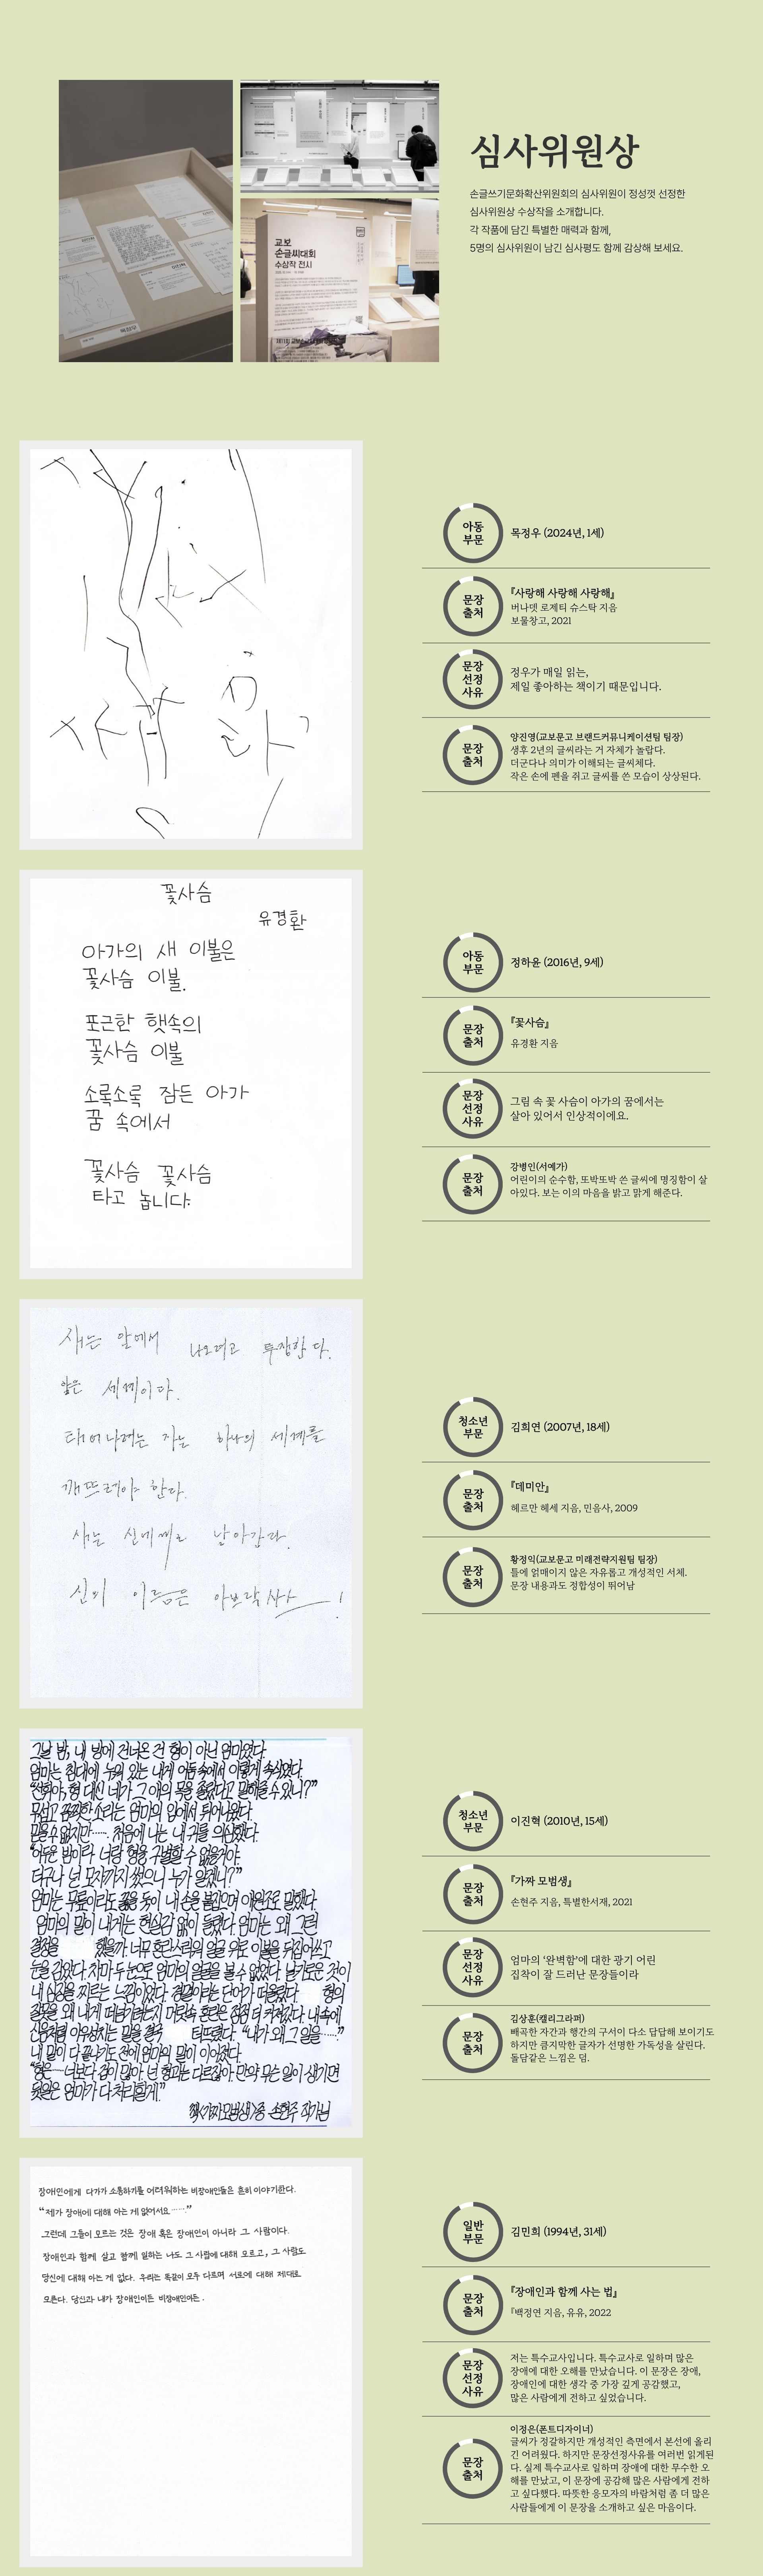 교보
손글씨대회
수상작 전시
심사위원상
손글쓰기문화확산위원회의 심사위원이 정성껏 선정한
심사위원상 수상작을 소개합니다.
각 작품에 담긴 특별한 매력과 함께,
5명의 심사위원이 남긴 심사평도 함께 감상해 보세요.
사랑
사랑해
아동
부문
목정우 (2024년, 1세)
문장
출처
『사랑해 사랑해 사랑해』
버나뎃 로제티 슈스탁 지음
보물창고, 2021
문장
선정
사유
정우가 매일 읽는,
제일 좋아하는 책이기 때문입니다.
문장
출처
양진영(교보문고 브랜드커뮤니케이션팀 팀장)
생후 2년의 글씨라는 거 자체가 놀랍다.
더군다나 의미가 이해되는 글씨체다.
작은 손에 펜을 쥐고 글씨를 쓴 모습이 상상된다.
꽃사슴
유경환
아가의 새 이불은
꽃사슴 이불.
포근한 햇속의
꽃사슴 이불
소록소록 잠든 아가
꿈 속에서
꽃사슴 꽃사슴
타고 놉니다.
아동
부문
정하윤 (2016년, 9세)
문장
출처
『꽃사슴』
유경환 지음
문장
선정
사유
그림 속 꽃 사슴이 아가의 꿈에서는
살아 있어서 인상적이에요.
문장
출처
강병인(서예가)
어린이의 순수함, 또박또박 쓴 글씨에 명징함이 살
아있다. 보는 이의 마음을 밝고 맑게 해준다.
새는 알에서 나오려고 투쟁한다.
알은 세계이다.
태어나려는 자는 하나의 세계를
깨뜨려야 한다.
새는 신에게로 날아간다.
신의 이름은 아브락사스!
청소년
부문
김희연 (2007년, 18세)
문장
출처
『데미안』
헤르만 헤세 지음, 민음사, 2009
문장
출처
황정익(교보문고 미래전략지원팀 팀장)
틀에 얽매이지 않은 자유롭고 개성적인 서체.
문장 내용과도 정합성이 뛰어남
그날 밤, 내 방에 건너온 건 형이 아닌 엄마였다.
엄마는 침대에 누워 있는 내게 어둠 속에서 이렇게 속삭였다.
“진휘야, 형 대신 네가 그 애의 목을 졸랐다고 말해줄 수 있니?”
무섭고 끔찍한 소리는 엄마의 입에서 튀어나왔다.
믿을 수 없지만……. 처음에 나는 내 귀를 의심했다.
“어두운 밤이라 너랑 형을 구별할 수 없을거야.
더구나 넌 모자까지 썼으니 누가 알겠니?”
엄마는 무릎이라도 꿇을 듯이 내 손을 붙잡으며 애원조로 말했다.
엄마의 말이 내게는 현실감 없이 들렸다. 엄마는 왜 그런
결정을 했을까. 너무 혼란스러워 얼굴 위로 이불을 뒤집어쓰고
눈을 감았다. 차마 두 눈으로 엄마의 얼굴을 볼 수 없었다. 날카로운 것이
내 심장을 찌르는 느낌이었다. 결말이라는 단어가 떠올랐다. 형의
잘못을 왜 내게 떠넘기려는지 머릿속 혼란은 점점 더 커져갔다. 내 속에
터뜨렸다. “내가 왜 그 일을……”
내 말이 다 끝나기도 전에 엄마의 말이 이어졌다.
“형은…… 너보다 겁이 많아. 넌 형과는 다르잖아. 만약 무슨 일이 생기면
뒷일은 엄마가 다 처리할게.”
책<가짜 모범생>중 손현주 작가님
청소년
부문
이진혁 (2010년, 15세)
문장
출처
『가짜 모범생』
손현주 지음, 특별한서재, 2021
문장
선정
사유
엄마의 ‘완벽함’에 대한 광기 어린
집착이 잘 드러난 문장들이라
문장
출처
김상훈(캘리그라퍼)
빼곡한 자간과 행간의 구서이 다소 답답해 보이기도
하지만 큼지막한 글자가 선명한 가독성을 살린다.
돌담같은 느낌은 덤.
장애인에게 다가가 소통하기를 어려워하는 비장애인들은 흔히 이야기한다.
“제가 장애에 대해 아는 게 없어서요……”
그런데 그들이 모르는 것은 장애 혹은 장애인이 아니라 그 사람이다.
장애인과 함께 살고 함께 일하는 나도 그 사람에 대해 모르고, 그 사람도
당신에 대해 아는 게 없다. 우리는 똑같이 모두 다르며 서로에 대해 제대로
모른다. 당신과 내가 장애인이든 비장애인이든.
일반
부문
김민희 (1994년, 31세)
문장
출처
『장애인과 함께 사는 법』
『백정연 지음, 유유, 2022
문장
선정
사유
저는 특수교사입니다. 특수교사로 일하며 많은
장애에 대한 오해를 만났습니다. 이 문장은 장애,
장애인에 대한 생각 중 가장 깊게 공감했고,
많은 사람에게 전하고 싶었습니다.
문장
출처
이정은(폰트디자이너)
글씨가 정갈하지만 개성적인 측면에서 본선에 올리
긴 어려웠다. 하지만 문장선정사유를 여러번 읽게된
다. 실제 특수교사로 일하며 장애에 대한 무수한 오
해를 만났고, 이 문장에 공감해 많은 사람에게 전하
고 싶다했다. 따뜻한 응모자의 바람처럼 좀 더 많은
사람들에게 이 문장을 소개하고 싶은 마음이다.